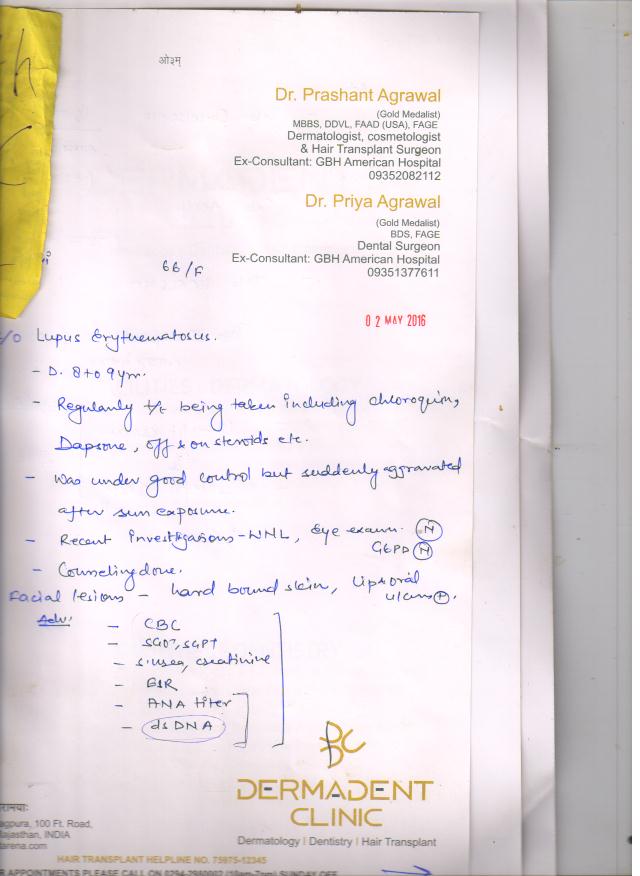 ओ३म्
Dr. Prashant Agrawal
(Gold Medalist)
MBBS, DDVL, FAAD (USA), FAGE
Dermatologist, cosmetologist
& Hair Transplant Surgeon
Ex-Consultant: GBH American Hospital
09352082112
Dr. Priya Agrawal
(Gold Medalist)
BDS, FAGE
Dental Surgeon
Ex-Consultant: GBH American Hospital
09351377611
66/F
02 MAY 2016
Lupus Erythematosus.
- D. 8 to 9 yrs.
- Regularly t/t being taken including chloroquin,
Dapsone, off & on steroids etc.
- Was under good control but suddenly aggravated
after sun exposure.
- Recent Investigations - WNL, Eye exam. (N)
G6PD (N)
- Counseling done.
Facial lesions - hard bound skin, Lips & oral
ulcers (+).
Adv:
- CBC
- SGOT, SGPT
- S. urea, creatinine
- ESR
- ANA titer
- dsDNA
DERMADENT
CLINIC
Dermatology | Dentistry | Hair Transplant
agpura, 100 Ft. Road,
ajasthan, INDIA
tarena.com
HAIR TRANSPLANT HELPLINE NO. 75975-12345
R APPOINTMENTS PLEASE CALL ON 0294-2980002 (10am-7pm) SUNDAY OFF